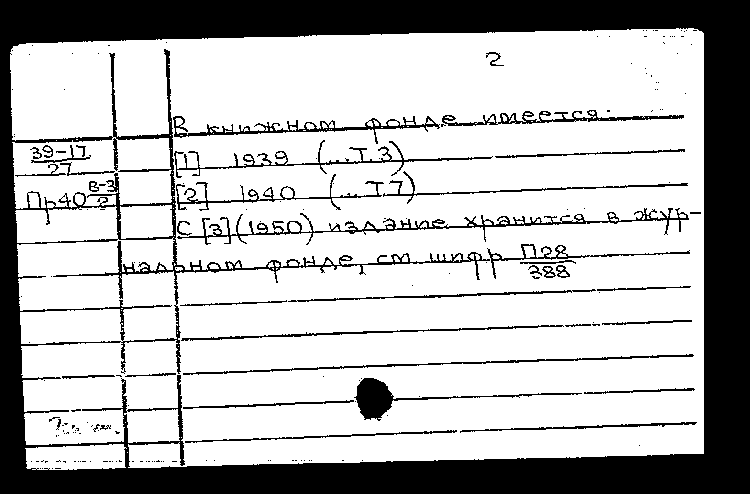 2
В книжном фонде имеется:
39-17/27 [1] 1939 (...Т.3)
Пр40 В-3/2 [2] 1940 (...Т.7)
С [3] (1950) издание хранится в жур-
нальном фонде, см. шифр П28/388